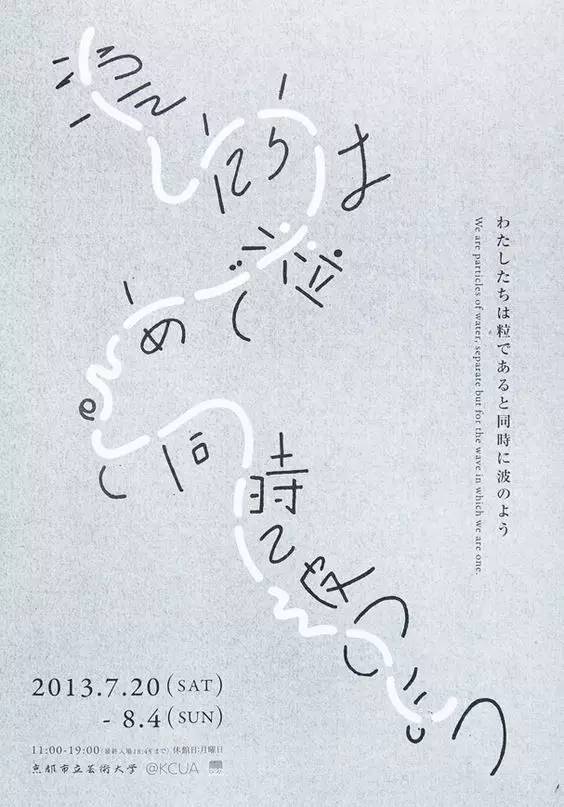 わたしたちは粒であると同時に波のよう
わたしたちは粒であると同時に波のよう
We are particles of water, separate but for the wave in which we are one.
2013.7.20(SAT)
- 8.4(SUN)
11:00-19:00(最終入場18:45まで) 休館日:月曜日
京都市立芸術大学 @KCUA